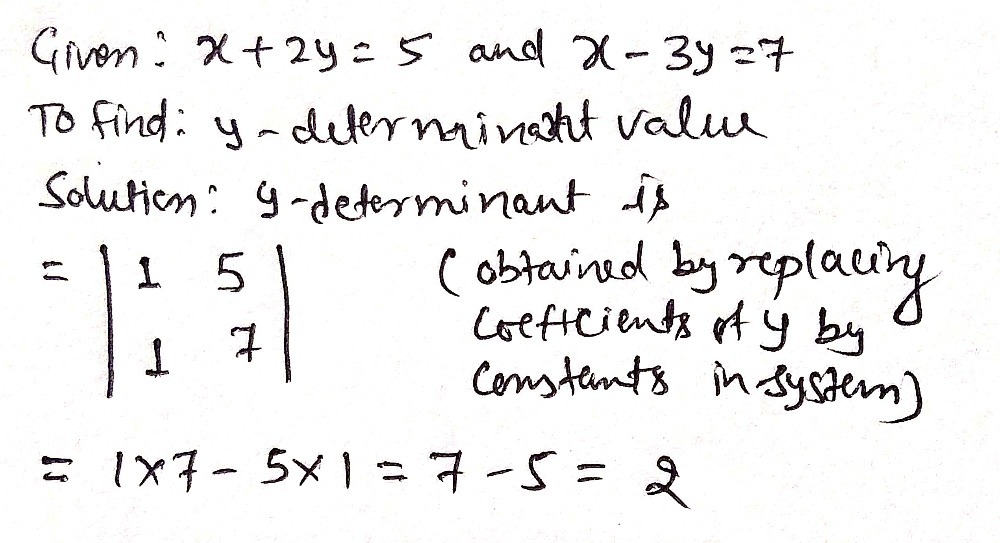 Given: x + 2y = 5 and x - 3y = 7
To find: y - determinant value
Solution: y-determinant is
= | 1 5 | (obtained by replacing
| 1 7 | coefficients of y by
constants in system)
= 1×7 - 5×1 = 7 - 5 = 2